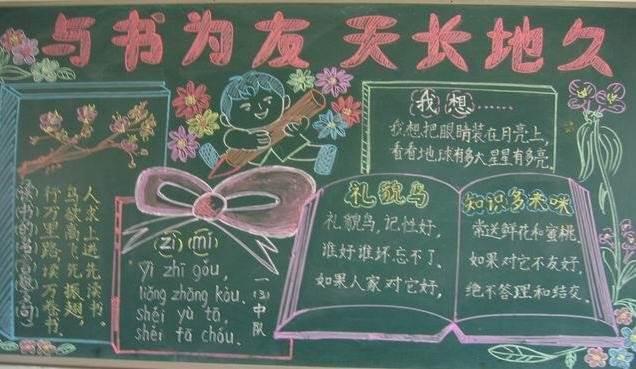 与书为友 天长地久
人求上进先读书.
鸟欲高飞先振翅,
行万里路读万卷书.
读书的名言警句
(zì)(mí)
Yì zhī gǒu,
liǒng zhāng kǒu.
shéi yù tā,
shéi fā chóu.
一(3)中队
我想……
我想把眼睛装在月亮上,
看看地球有多大星星有多亮.
礼貌鸟
礼貌鸟,记性好,
谁好谁坏忘不了.
如果人家对它好,
知识多来咪
常送鲜花和蜜桃.
如果对它不友好,
绝不答理和结交.